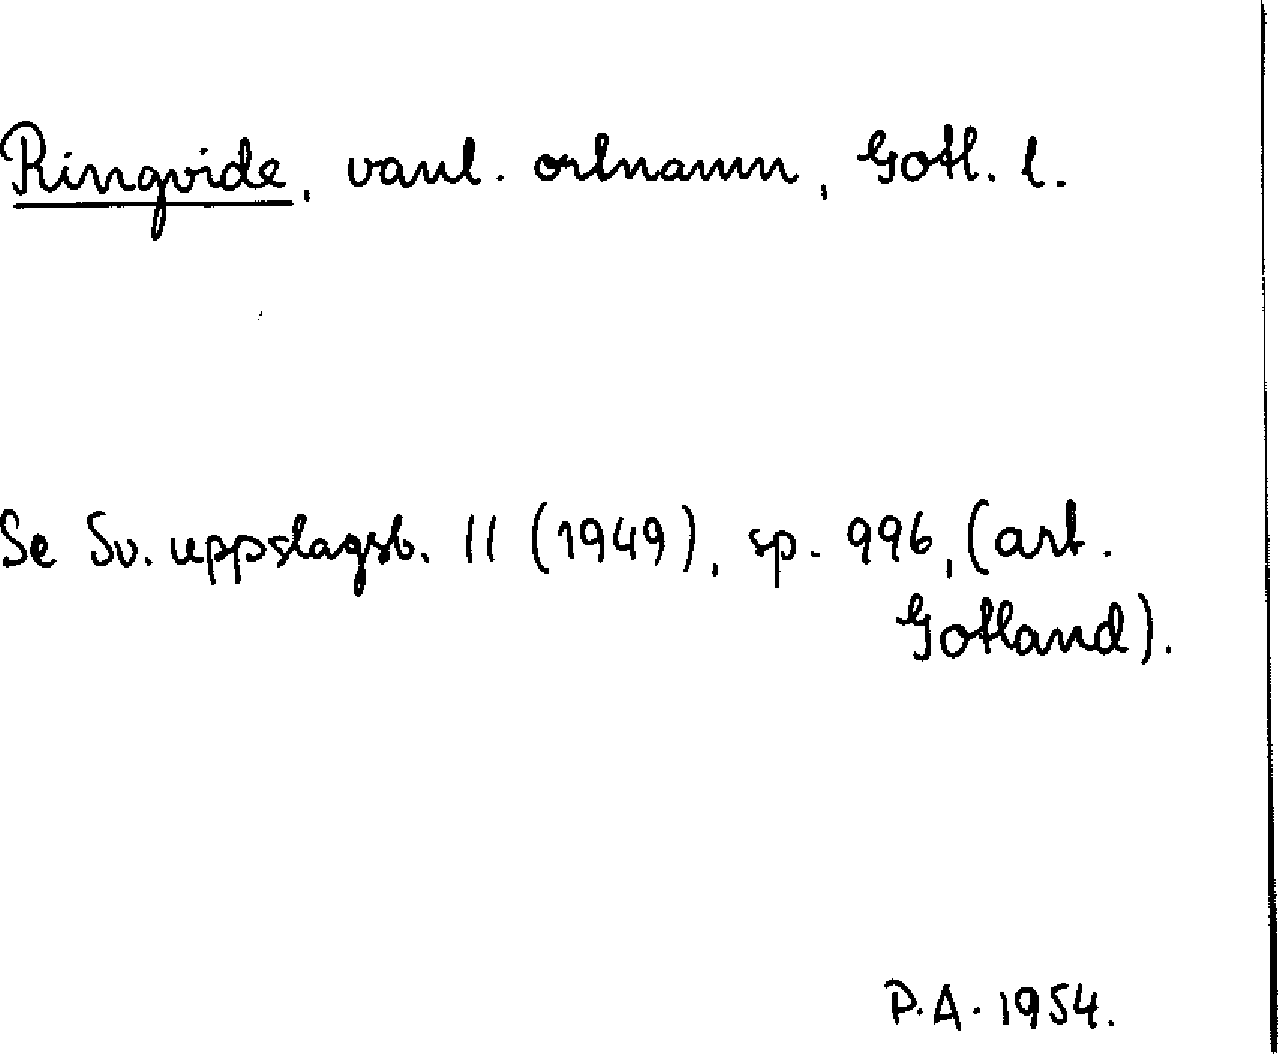 Ringvide, vanl. ortnamn, Gotl. l.
Se Sv. uppslagsb. 11 (1949), sp. 996, (art.
Gotland).
P.A. 1954.